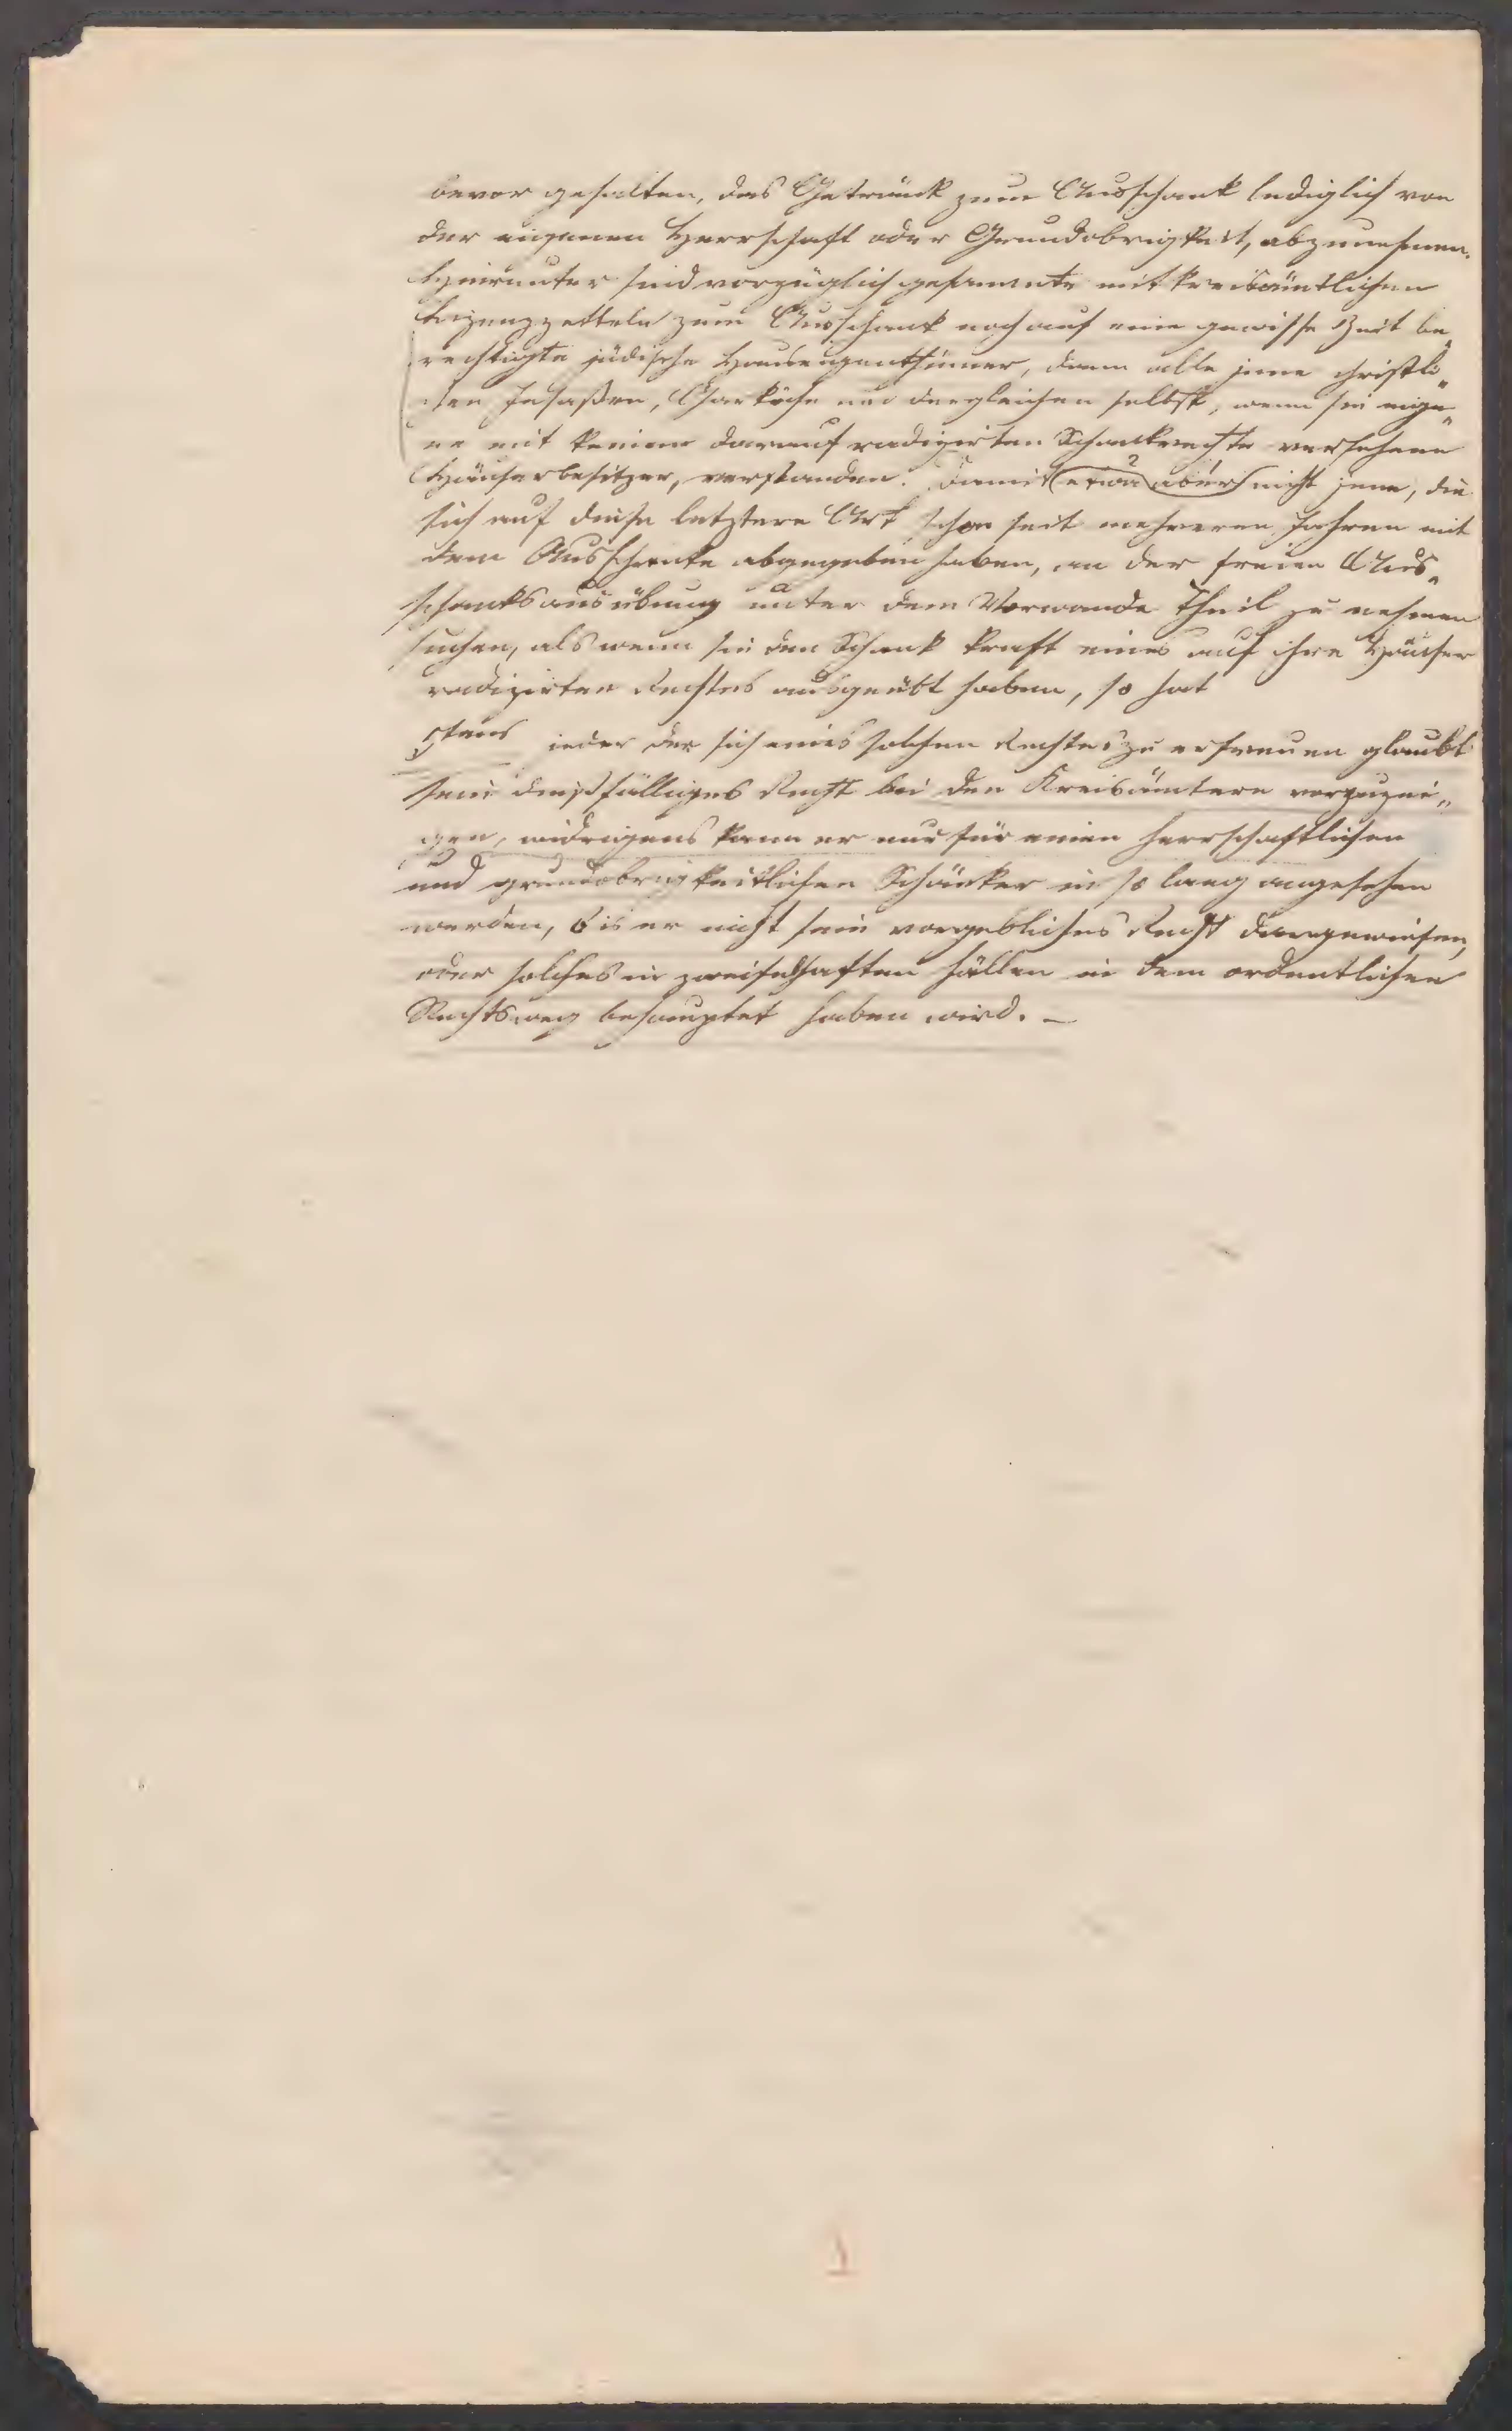 bevor gehalten, das Getränk zum Ausschank lediglich von
der eigenen Herrschaft oder Grundobrigkeit, abzunehmen.
Hierunter sind vorzüglich gesammte mit kreisämtlichen
Lizenzzetteln zum Ausschank noch auf eine gewisse Zeit be„
rechtigte jüdische Hauseigenthümer, dann alle jene christli„
chen Insaßen, Garköche und dergleichen selbst, wenn sie eige„
ne mit keinem darauf radizirten Schankrechte versehene
Häuserbesitzer, verstanden. Damit etwa aber nicht jene, die
sich auf diese letztere Art schon seit mehreren Jahren mit
dem Ausschanke abgegeben haben, an der freien Aus„
schanksausübung unter dem Vorwande Theil zu nehmen
suchen, als wenn sie den Schank kraft eines auf ihre Häuser
radizirten Rechtes ausgeübt haben, so hat
5tens jeder der sich eines solchen Rechtes zu erfreuen glaubt
sein dießfälliges Recht bei den Kreisämtern vorzuzei„
gen, widrigens kann er nur für einen herrschaftlichen
und grundobrigkeitlichen Schänker in so lang angesehen
werden, bis er nicht sein vorgebliches Recht dargewiesen,
oder solches in zweifelhaften Fällen in dem ordentlichen
Rechtsweg behauptet haben wird. –